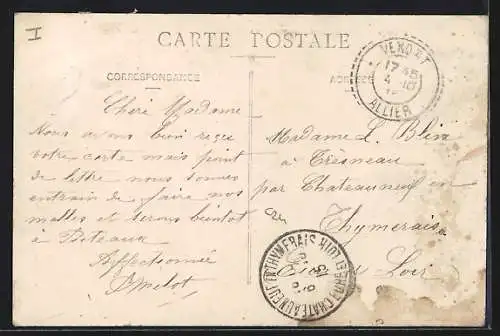 I
CARTE POSTALE
CORRESPONDANCE
ADRESSE
VENDAT
17 45
4 -10
ALLIER
Chère Madame
Nous avons bien reçu
votre carte mais point
de lettre nous sommes
entrain de faire nos
malles et serons bientôt
à Puteaux
Affectionnée
Amelot
Madame L. Blin
à Tresneau
par Chateauneuf en
Thymerais
Eure & Loir
CHATEAUNEUF EN THYMERAIS EURE ET LOIR